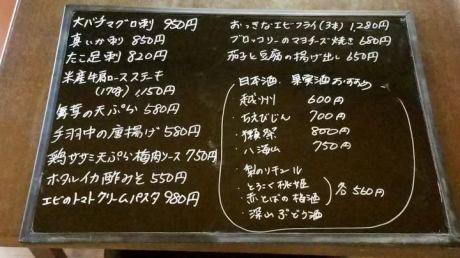 大バチマグロ刺 950円
真いか刺 850円
たこ足刺 820円
米産牛肩ロースステーキ
(170g) 1,150円
舞茸の天ぷら 580円
手羽中の唐揚げ 580円
鶏ササミ天ぷら梅肉ソース 750円
ホタルイカ酢みそ 550円
エビのトマトクリームパスタ 980円
おっきなエビフライ(3本) 1,280円
ブロッコリーのマヨチーズ焼き 680円
茄子と豆腐の揚げ出し 650円
日本酒、果実酒おすすめ
・越州 600円
・ちえびじん 700円
・獺祭 800円
・八海山 750円
・梨のリキュール
・とろこく桃姫
・赤とんぼの梅酒
・深山ぶどう酒
各560円